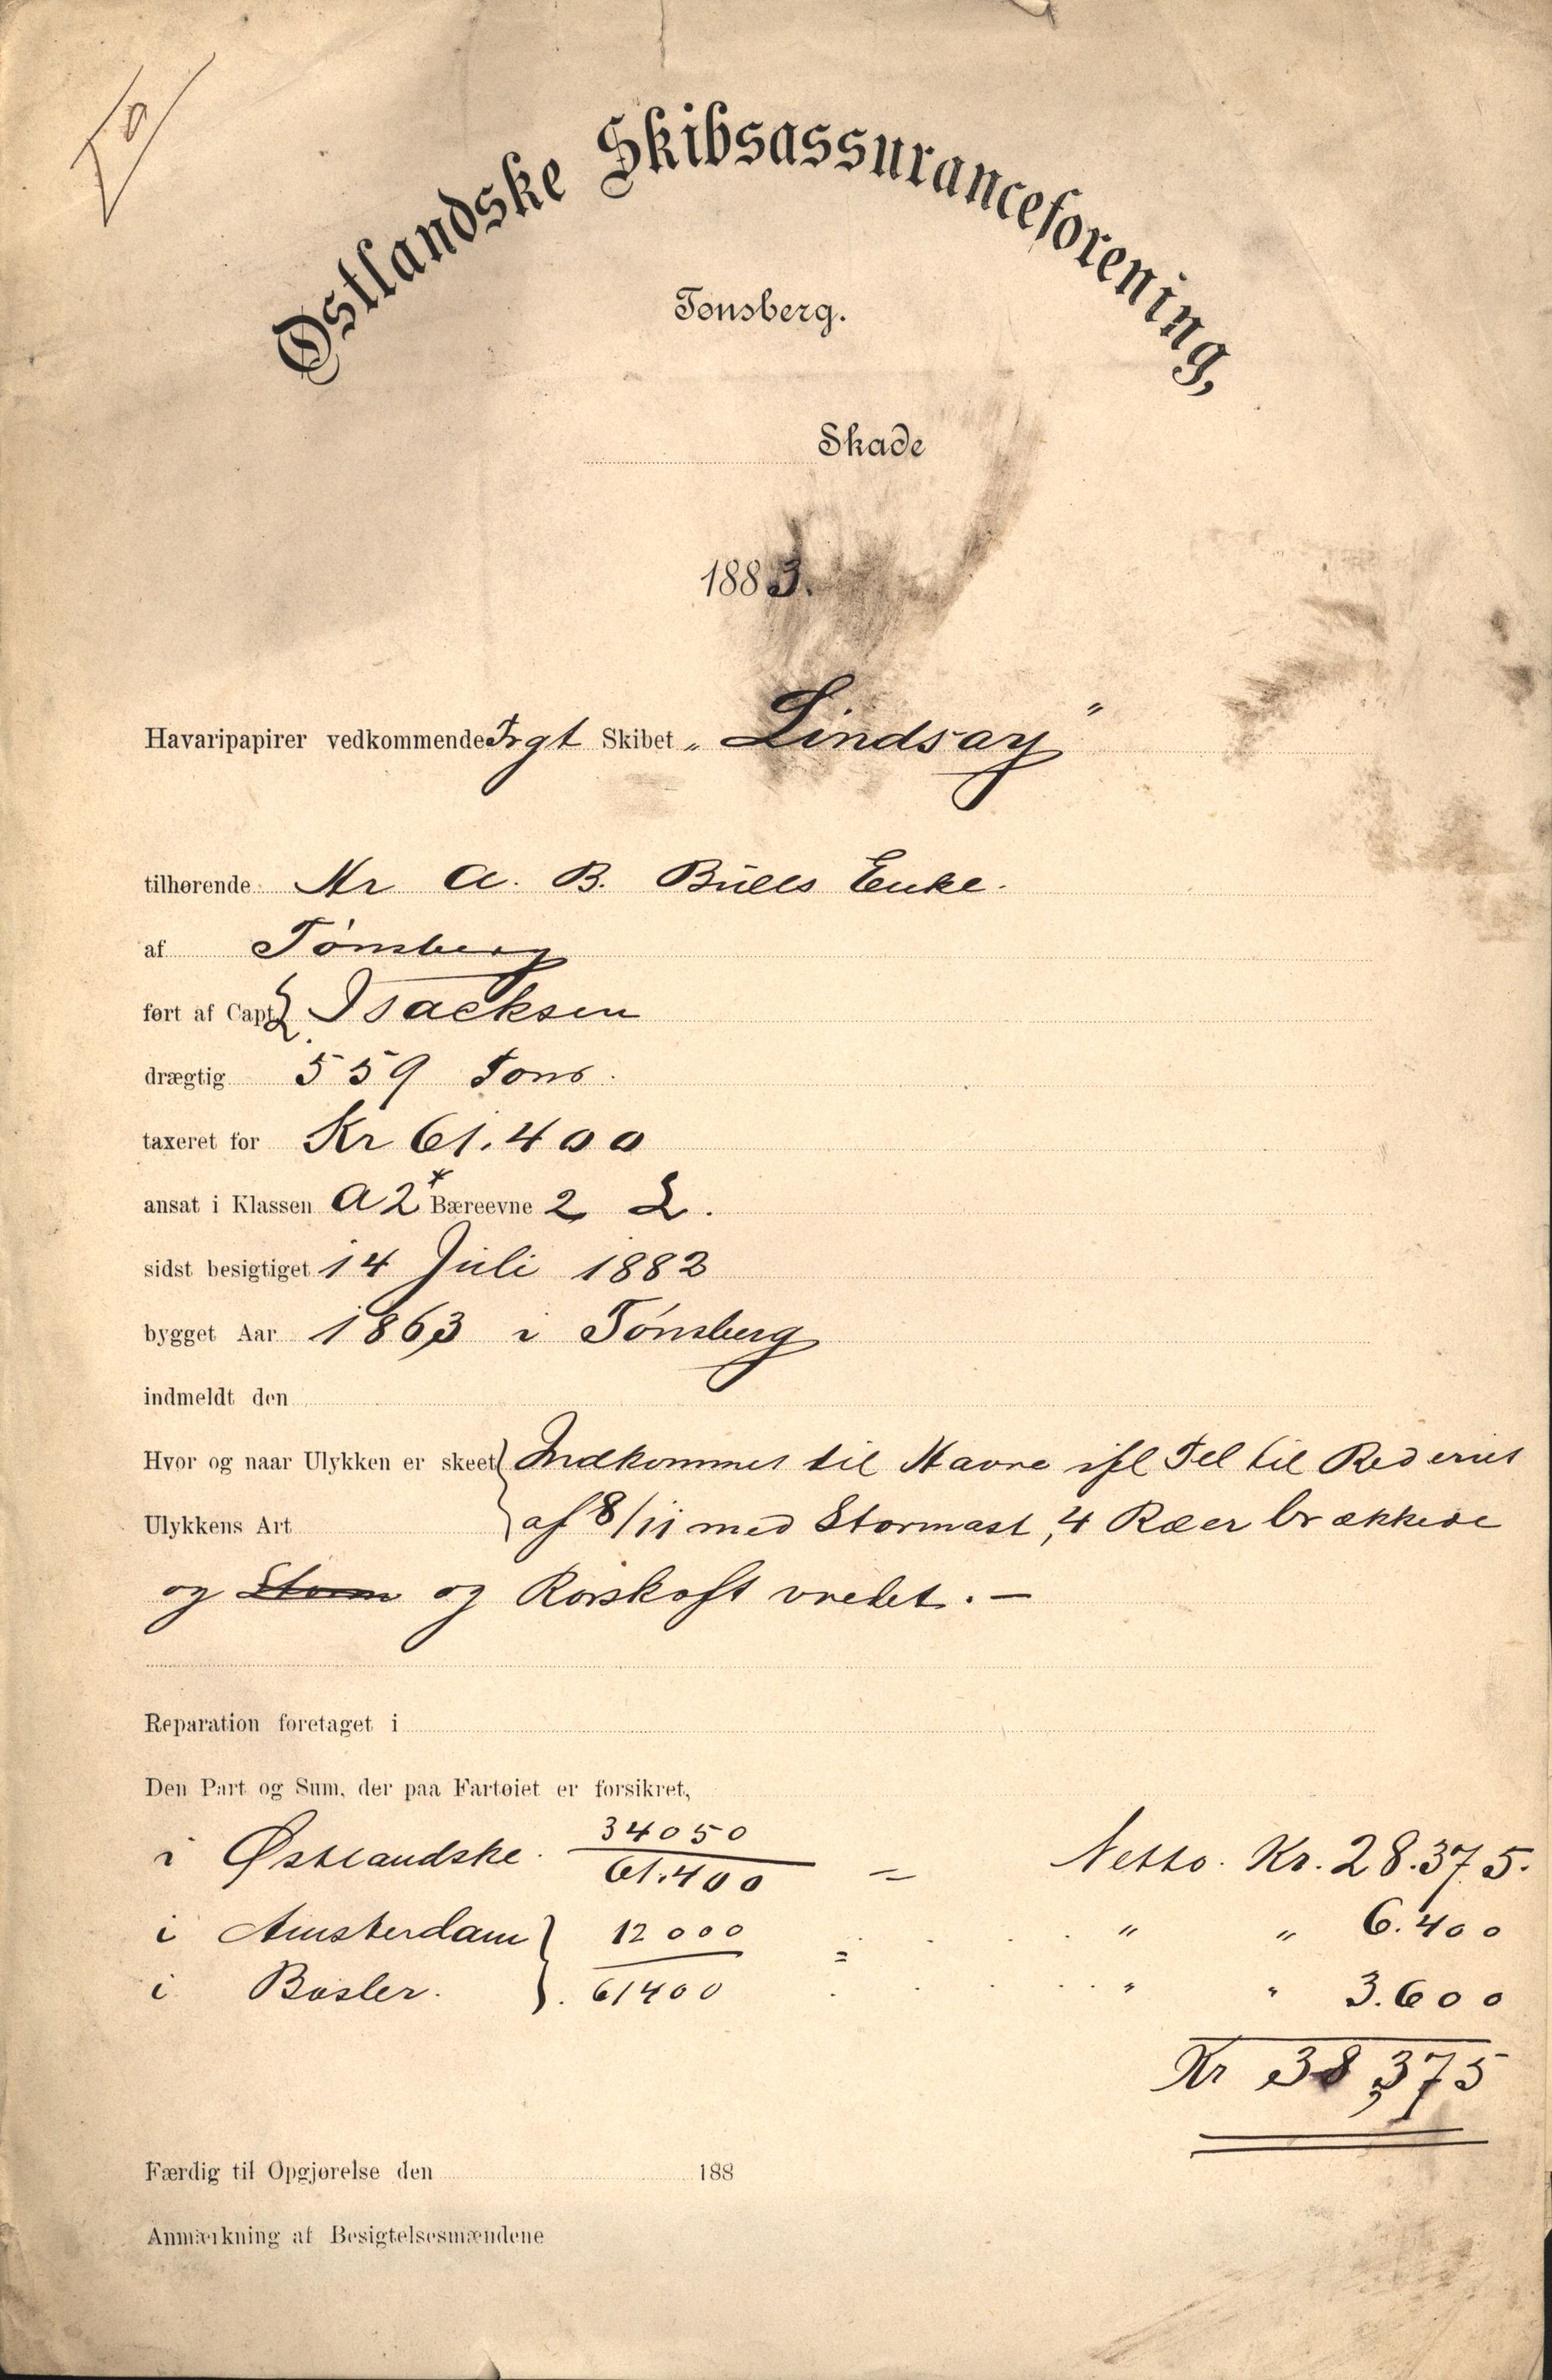 Østlandske Skibsassuranceforening,
Tønsberg.
Skade
1883.
Havaripapirer vedkommende Frgt Skibet „Lindsay"
tilhørende Hr A. B. Bulls Enke.
af Tønsberg
ført af Capt. Isacksen
drægtig 559 Tons.
taxeret for Kr 61.400
ansat i Klassen A2* Bæreevne 2 L.
sidst besigtiget 14 Juli 1882
bygget Aar 1863 i Tønsberg
indmeldt den
Hvor og naar Ulykken er skeet Indkommet til Havre ifl Tel til Rederiet
Ulykkens Art af 8/11 med Stormast, 4 Ræer brækkede
og Storm og Rorskaft vredet. —
Reparation foretaget i
Den Part og Sum, der paa Fartøiet er forsikret,
i Østlandske. 34050/61.400 = Netto. Kr. 28.375.
i Amsterdam } 12000 = " " 6.400
i Basler. } 61400 " " 3.600
Kr 38,375
Færdig til Opgjørelse den 188
Anmærkning af Besigtelsesmændene